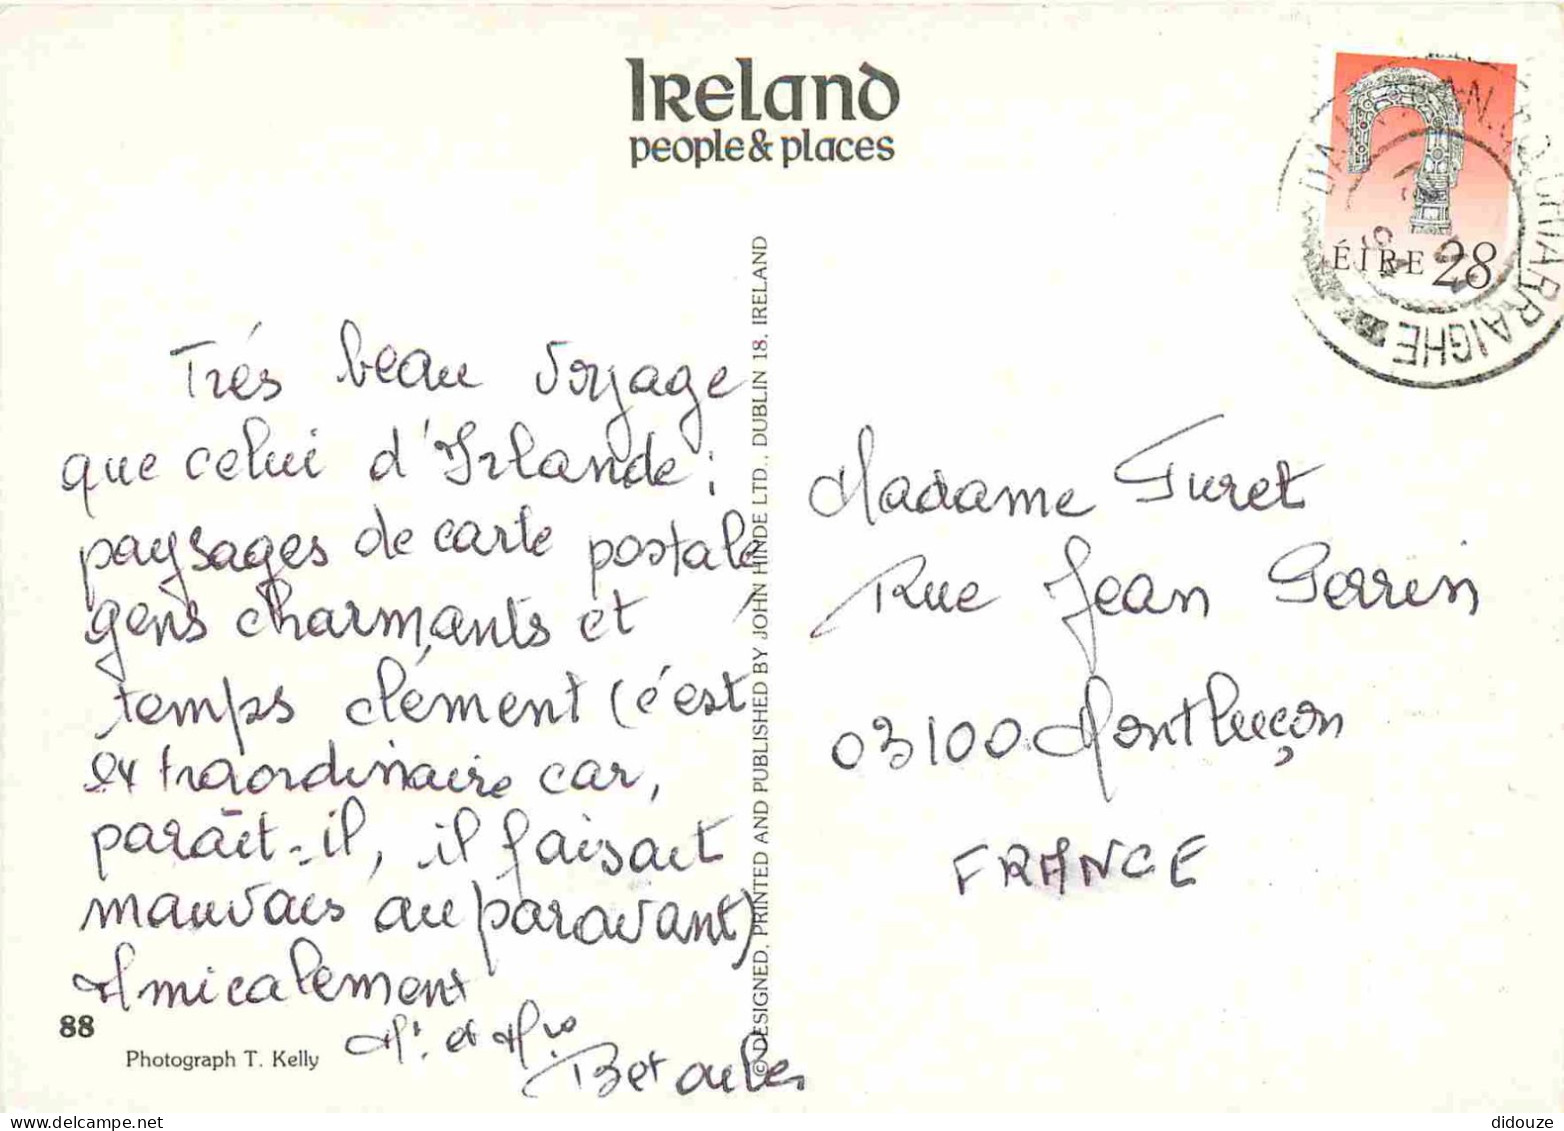 Ireland
people & places
ÉIRE 28
Trés beau voyage
que celui d'Irlande;
paysages de carte postale
gens charmants et
temps clément (c'est
extraordinaire car,
paraît-il, il faisait
mauvais auparavant)
Amicalement
Mr. et Mme
88
Photograph T. Kelly
© DESIGNED, PRINTED AND PUBLISHED BY JOHN HINDE LTD., DUBLIN 18, IRELAND
Madame Furet
Rue Jean Perrin
03100 Montluçon
FRANCE
didouze